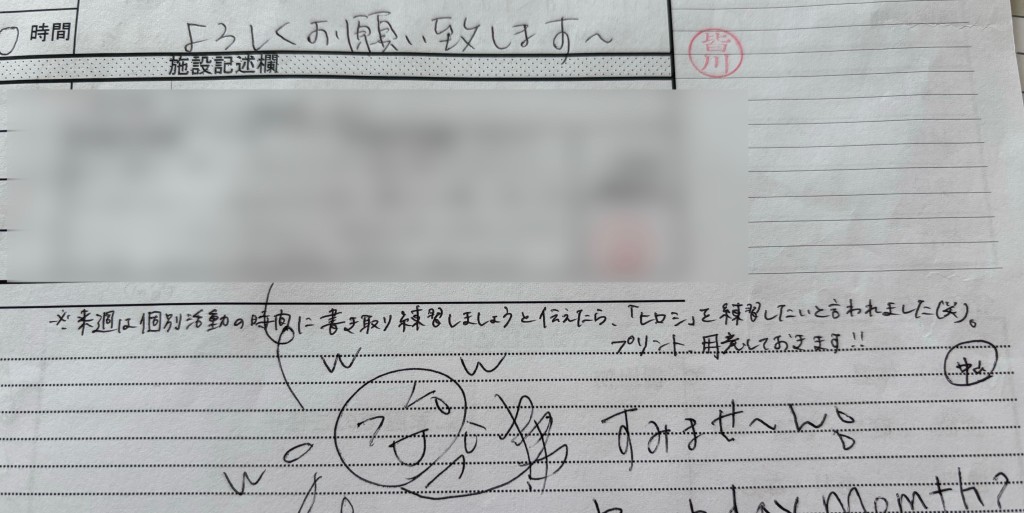 時間
よろしくお願い致します〜
皆川
施設記述欄
※来週は個別活動の時間に書き取り練習しましょうと伝えたら、「ヒロシ」を練習したいと言われました(笑)。
プリント、用意しておきます!!
w w
すみませ〜ん
w
day month?